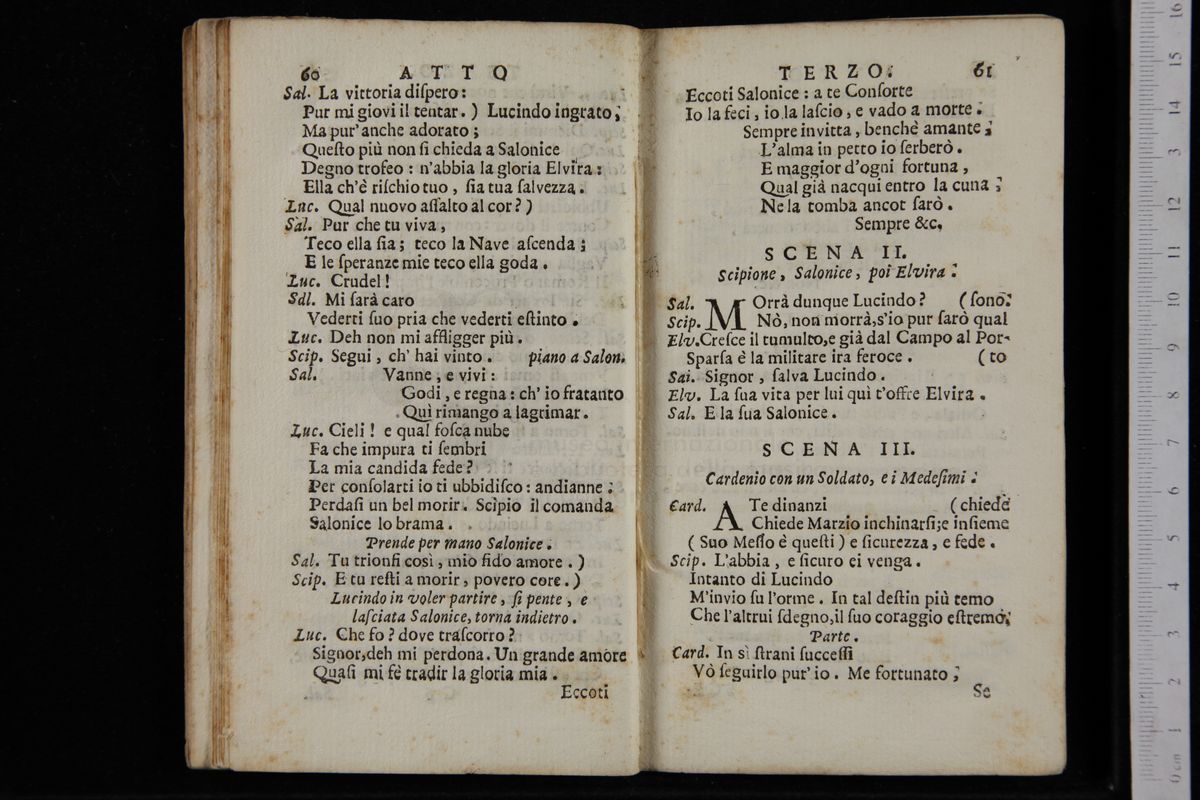 60 ATTO
Sal. La vittoria diſpero:
Pur mi giovi il tentar. ) Lucindo ingrato;
Ma pur' anche adorato;
Queſto più non ſi chieda a Salonice
Degno trofeo: n'abbia la gloria Elvira:
Ella ch'è riſchio tuo, ſia tua ſalvezza.
Luc. Qual nuovo aſſalto al cor? )
Sal. Pur che tu viva,
Teco ella ſia; teco la Nave aſcenda;
E le ſperanze mie teco ella goda.
Luc. Crudel!
Sal. Mi ſarà caro
Vederti ſuo pria che vederti eſtinto.
Luc. Deh non mi affligger più.
Scip. Segui, ch' hai vinto. piano a Salon.
Sal. Vanne, e vivi:
Godi, e regna: ch' io fratanto
Quì rimango a lagrimar.
Luc. Cieli! e qual foſca nube
Fa che impura ti ſembri
La mia candida fede?
Per conſolarti io ti ubbidiſco: andianne:
Perdaſi un bel morir. Scipio il comanda
Salonice lo brama.
Prende per mano Salonice.
Sal. Tu trionfi così, mio fido amore. )
Scip. E tu reſti a morir, povero core. )
Lucindo in voler partire, ſi pente, e
laſciata Salonice, torna indietro.
Luc. Che fo? dove traſcorro?
Signor, deh mi perdona. Un grande amore
Quaſi mi fè tradir la gloria mia.
Eccoti
TERZO. 61
Eccoti Salonice: a te Conſorte
Io la feci, io la laſcio, e vado a morte.
Sempre invitta, benchè amante;
L'alma in petto io ſerberò.
E maggior d'ogni fortuna,
Qual già nacqui entro la cuna;
Ne la tomba ancor ſarò.
Sempre &c.
SCENA II.
Scipione, Salonice, poi Elvira.
Sal. MOrrà dunque Lucindo? (ſono.
Scip. Nò, non morrà, s'io pur ſarò qual
Elv. Creſce il tumulto, e già dal Campo al Por-
Sparſa è la militare ira feroce. (to
Sal. Signor, ſalva Lucindo.
Elv. La ſua vita per lui quì t'offre Elvira.
Sal. E la ſua Salonice.
SCENA III.
Cardenio con un Soldato, e i Medeſimi.
Card. A Te dinanzi (chiede
Chiede Marzio inchinarſi; e inſieme
( Suo Meſſo è queſti ) e ſicurezza, e fede.
Scip. L'abbia, e ſicuro ei venga.
Intanto di Lucindo
M'invio ſu l'orme. In tal deſtin più temo
Che l'altrui ſdegno, il ſuo coraggio eſtremo.
Parte.
Card. In sì ſtrani ſucceſſi
Vò ſeguirlo pur' io. Me fortunato;
Se